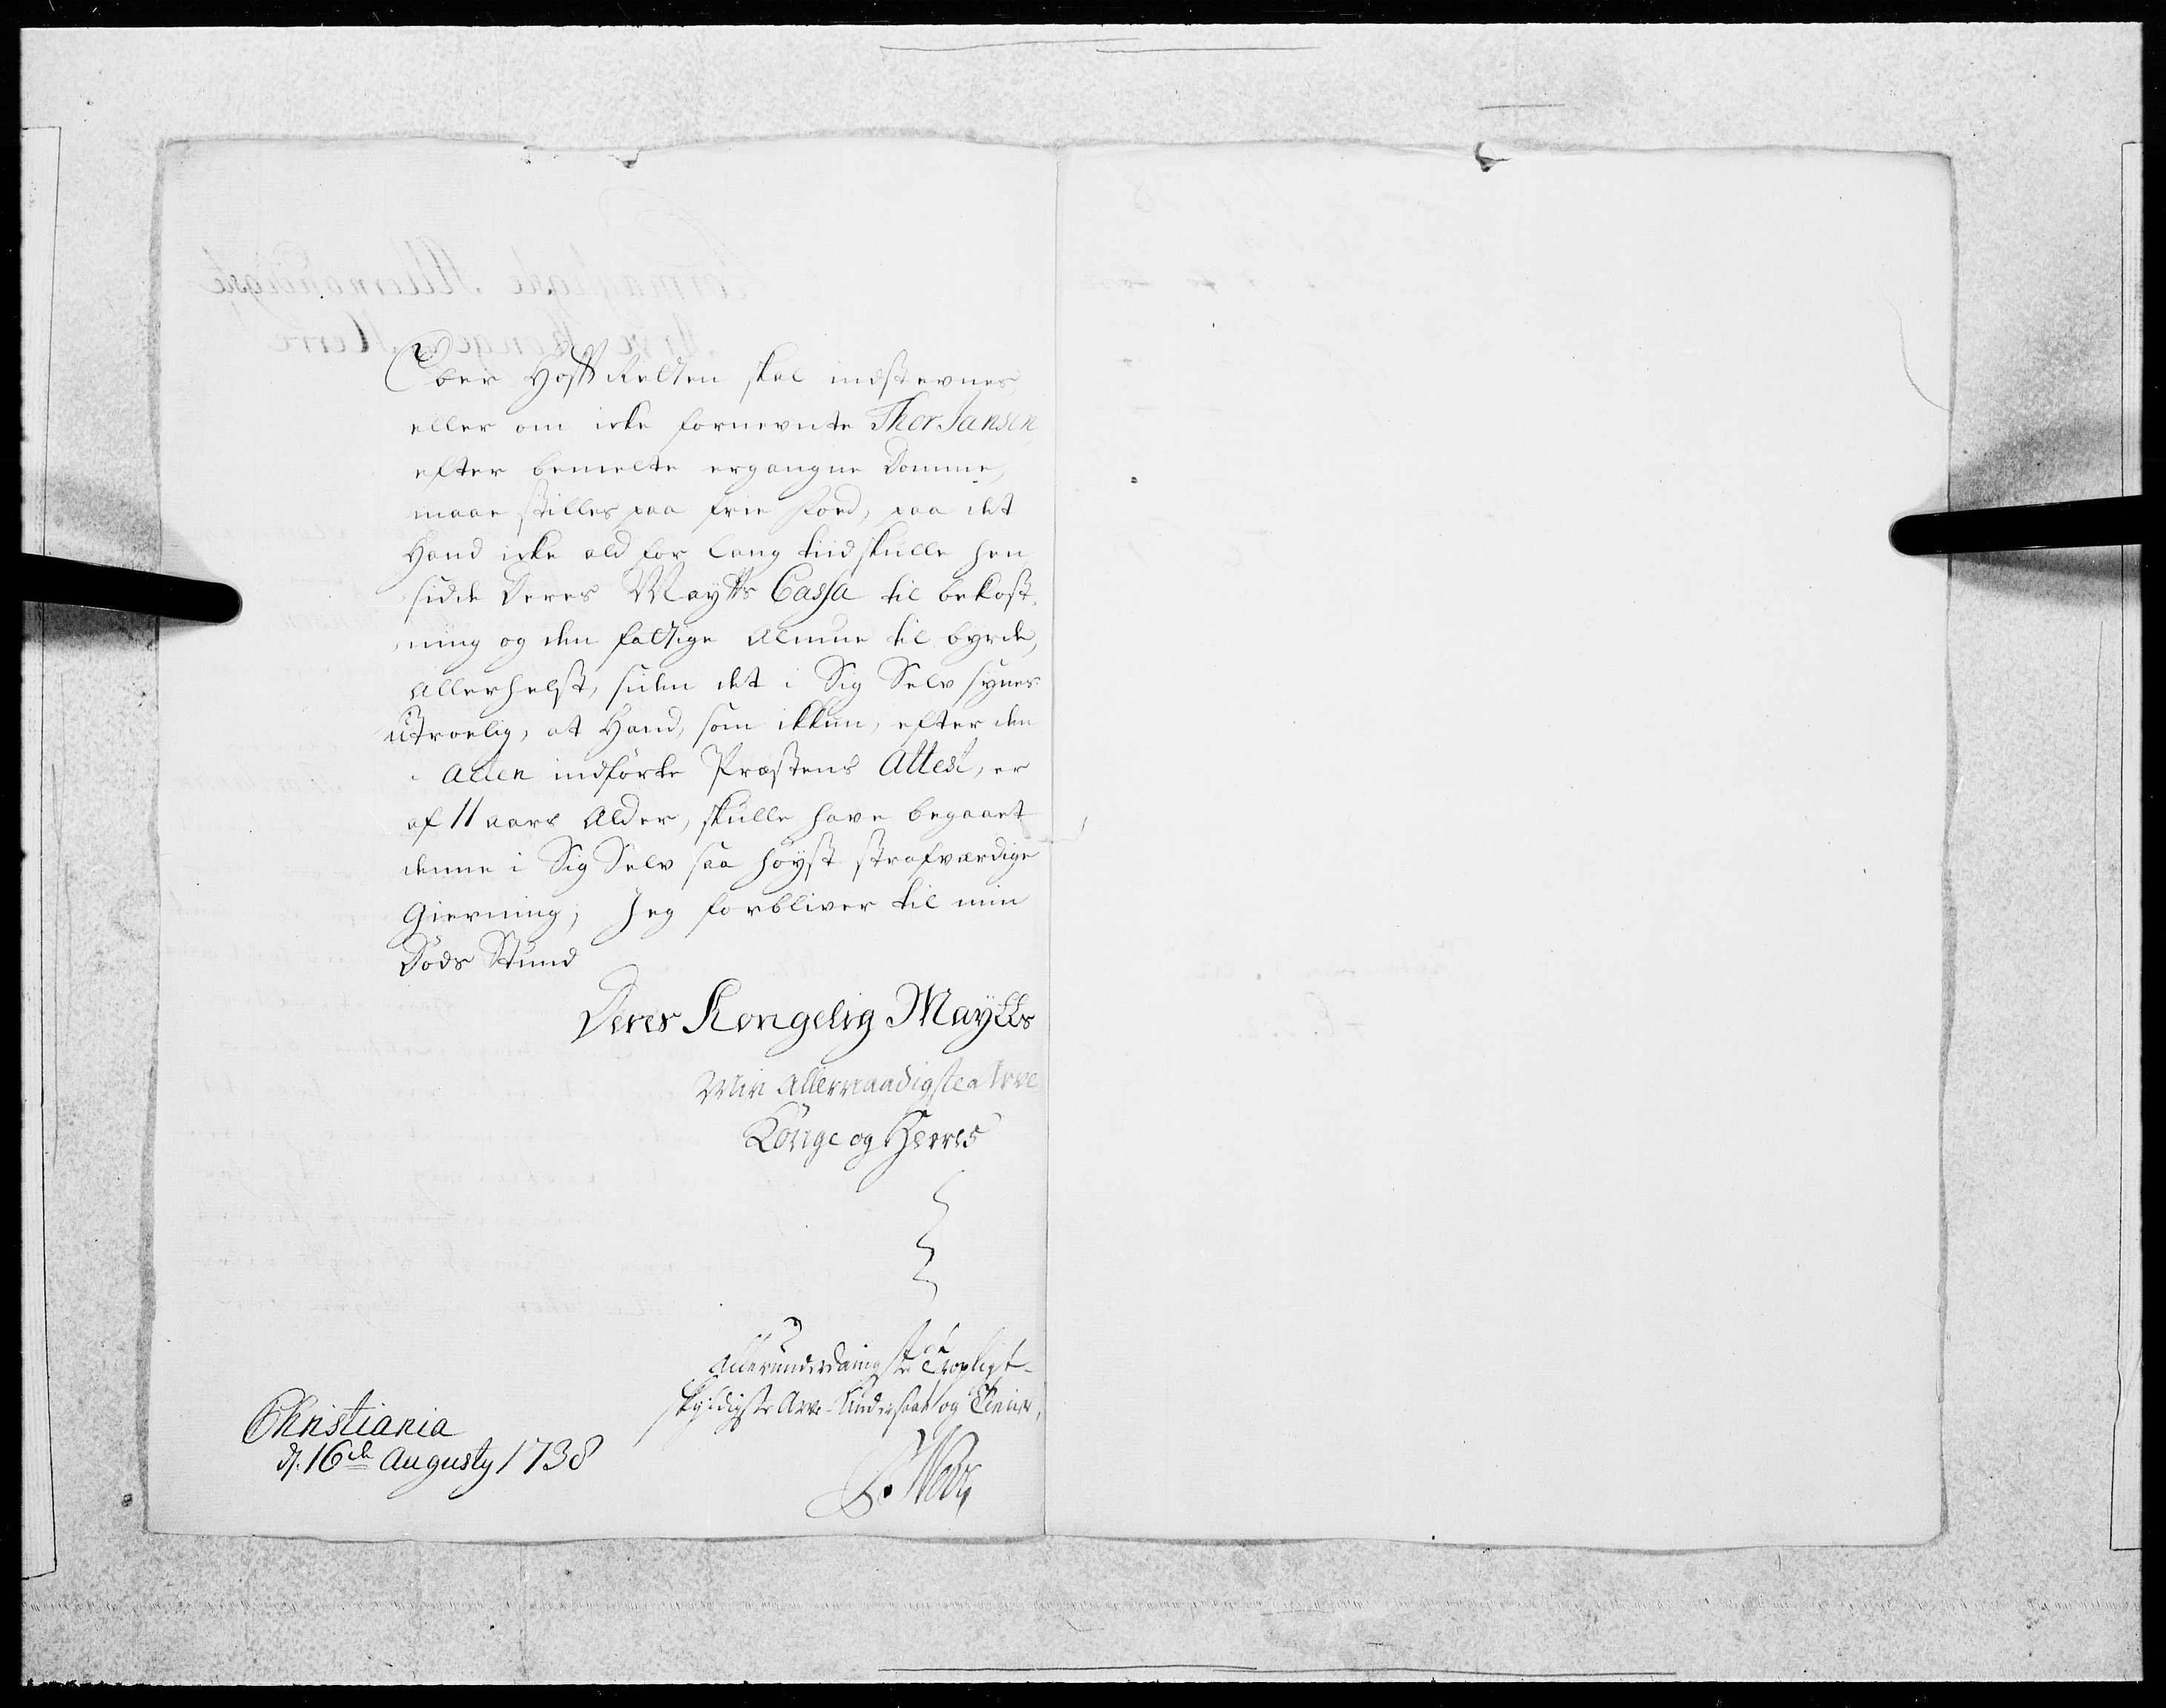 Ober Hoff Retten skal indstevnes,
eller om icke fornevnte Thor Jansen,
efter bemelte ergangne Domme,
maae stilles paa frie Foed, paa det
Hand icke ald for lang tiid skulle hen
sidde Deres Maytts Cassa til bekost,
ning og den fattige Almue til byrde,
Allerhelst, siden det i Sig Selv synes
utroelig, at Hand, som ikkun, efter den
i Acten indførte Præstens Attest, er
af 11 aars Alder, skulle have begaaet
denne i Sig Selv saa høyst strafværdige
Gierning; Jeg forbliver til min
Døds Stund
Deres Kongelig Maytts
Min Allernaadigste Arve
Konge og Herres
Allerunderdanigste Troepligt-
skyldigste Arve-Undersaat og Tiener,
Christiania
d. 16de Augusty 1738